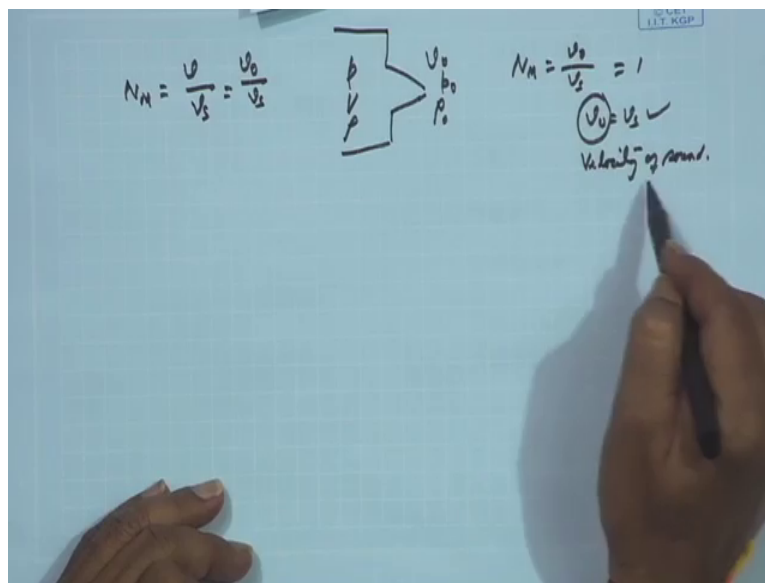 © CET
I.I.T. KGP
N_M = v / v_s = v_0 / v_s
p
v
ρ
v_0
p_0
ρ_0
N_M = v_0 / v_s = 1
v_0 = v_s ✓
Velocity of sound.